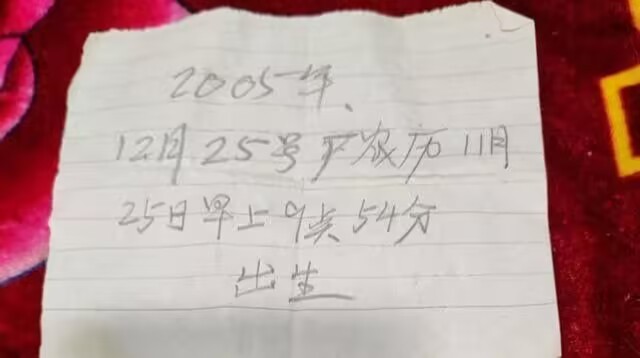 2005年、
12月25号 农历11月
25日早上9点54分
出生